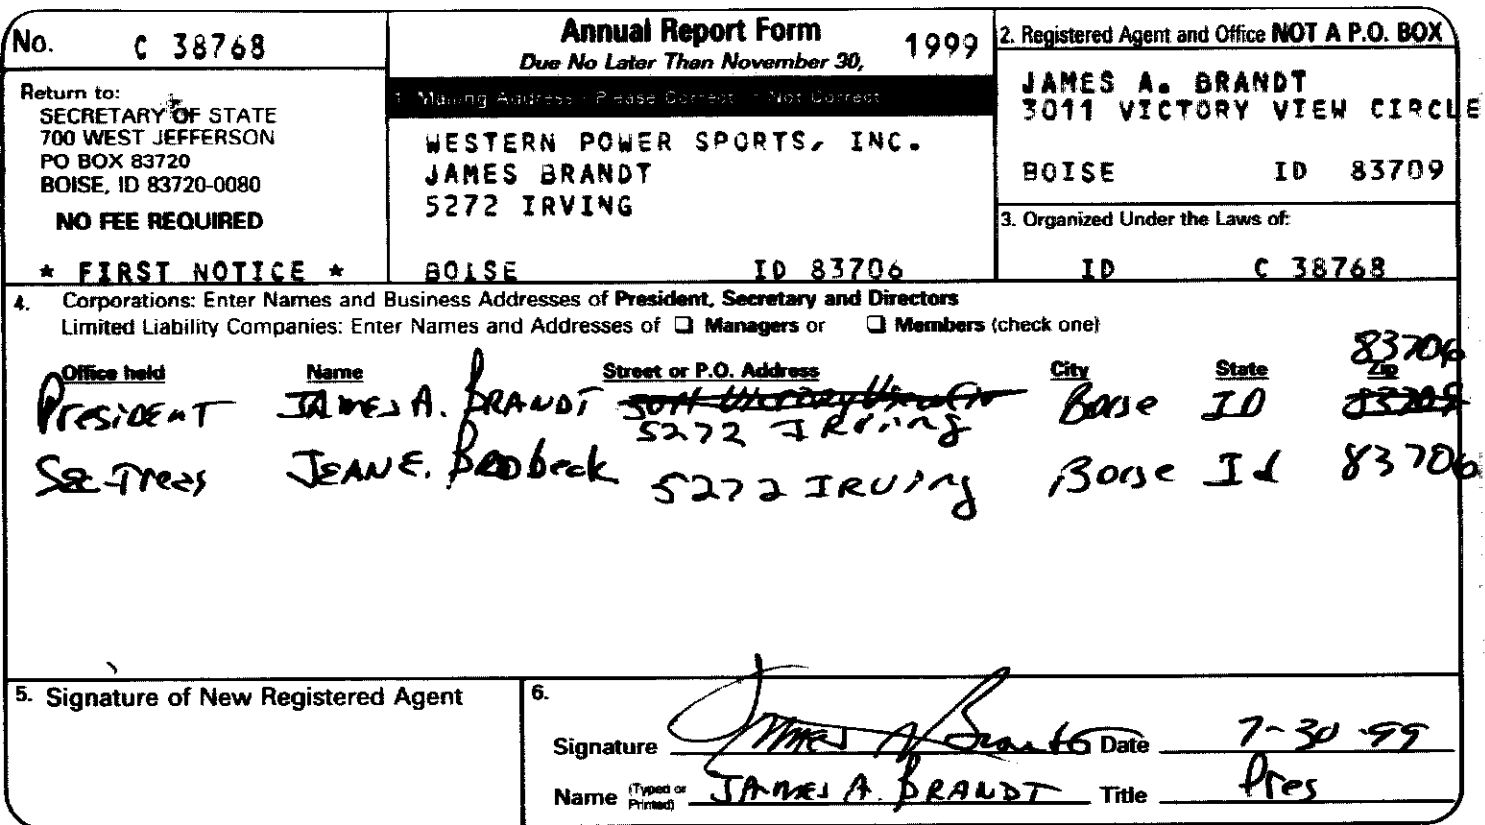 No. C 38768
Return to:
SECRETARY OF STATE
700 WEST JEFFERSON
PO BOX 83720
BOISE, ID 83720-0080
NO FEE REQUIRED
* FIRST NOTICE *
Annual Report Form 1999
Due No Later Than November 30,
1. Mailing Address - Please Correct If Not Correct
WESTERN POWER SPORTS, INC.
JAMES BRANDT
5272 IRVING
BOISE ID 83706
2. Registered Agent and Office NOT A P.O. BOX
JAMES A. BRANDT
3011 VICTORY VIEW CIRCLE
BOISE ID 83709
3. Organized Under the Laws of:
ID C 38768
4. Corporations: Enter Names and Business Addresses of President, Secretary and Directors
Limited Liability Companies: Enter Names and Addresses of ☐ Managers or ☐ Members (check one)
83706
Office held Name Street or P.O. Address City State Zip
President JAMES A. BRANDT 3011 Victory View Cir Boise ID 83709
5272 IRving
Sec-Treas JEAN E. BRObeck 5272 IRVing Boise Id 83706
5. Signature of New Registered Agent
6.
Signature James A Brandt Date 7-30-99
Name (Typed or Printed) JAMES A. BRANDT Title Pres